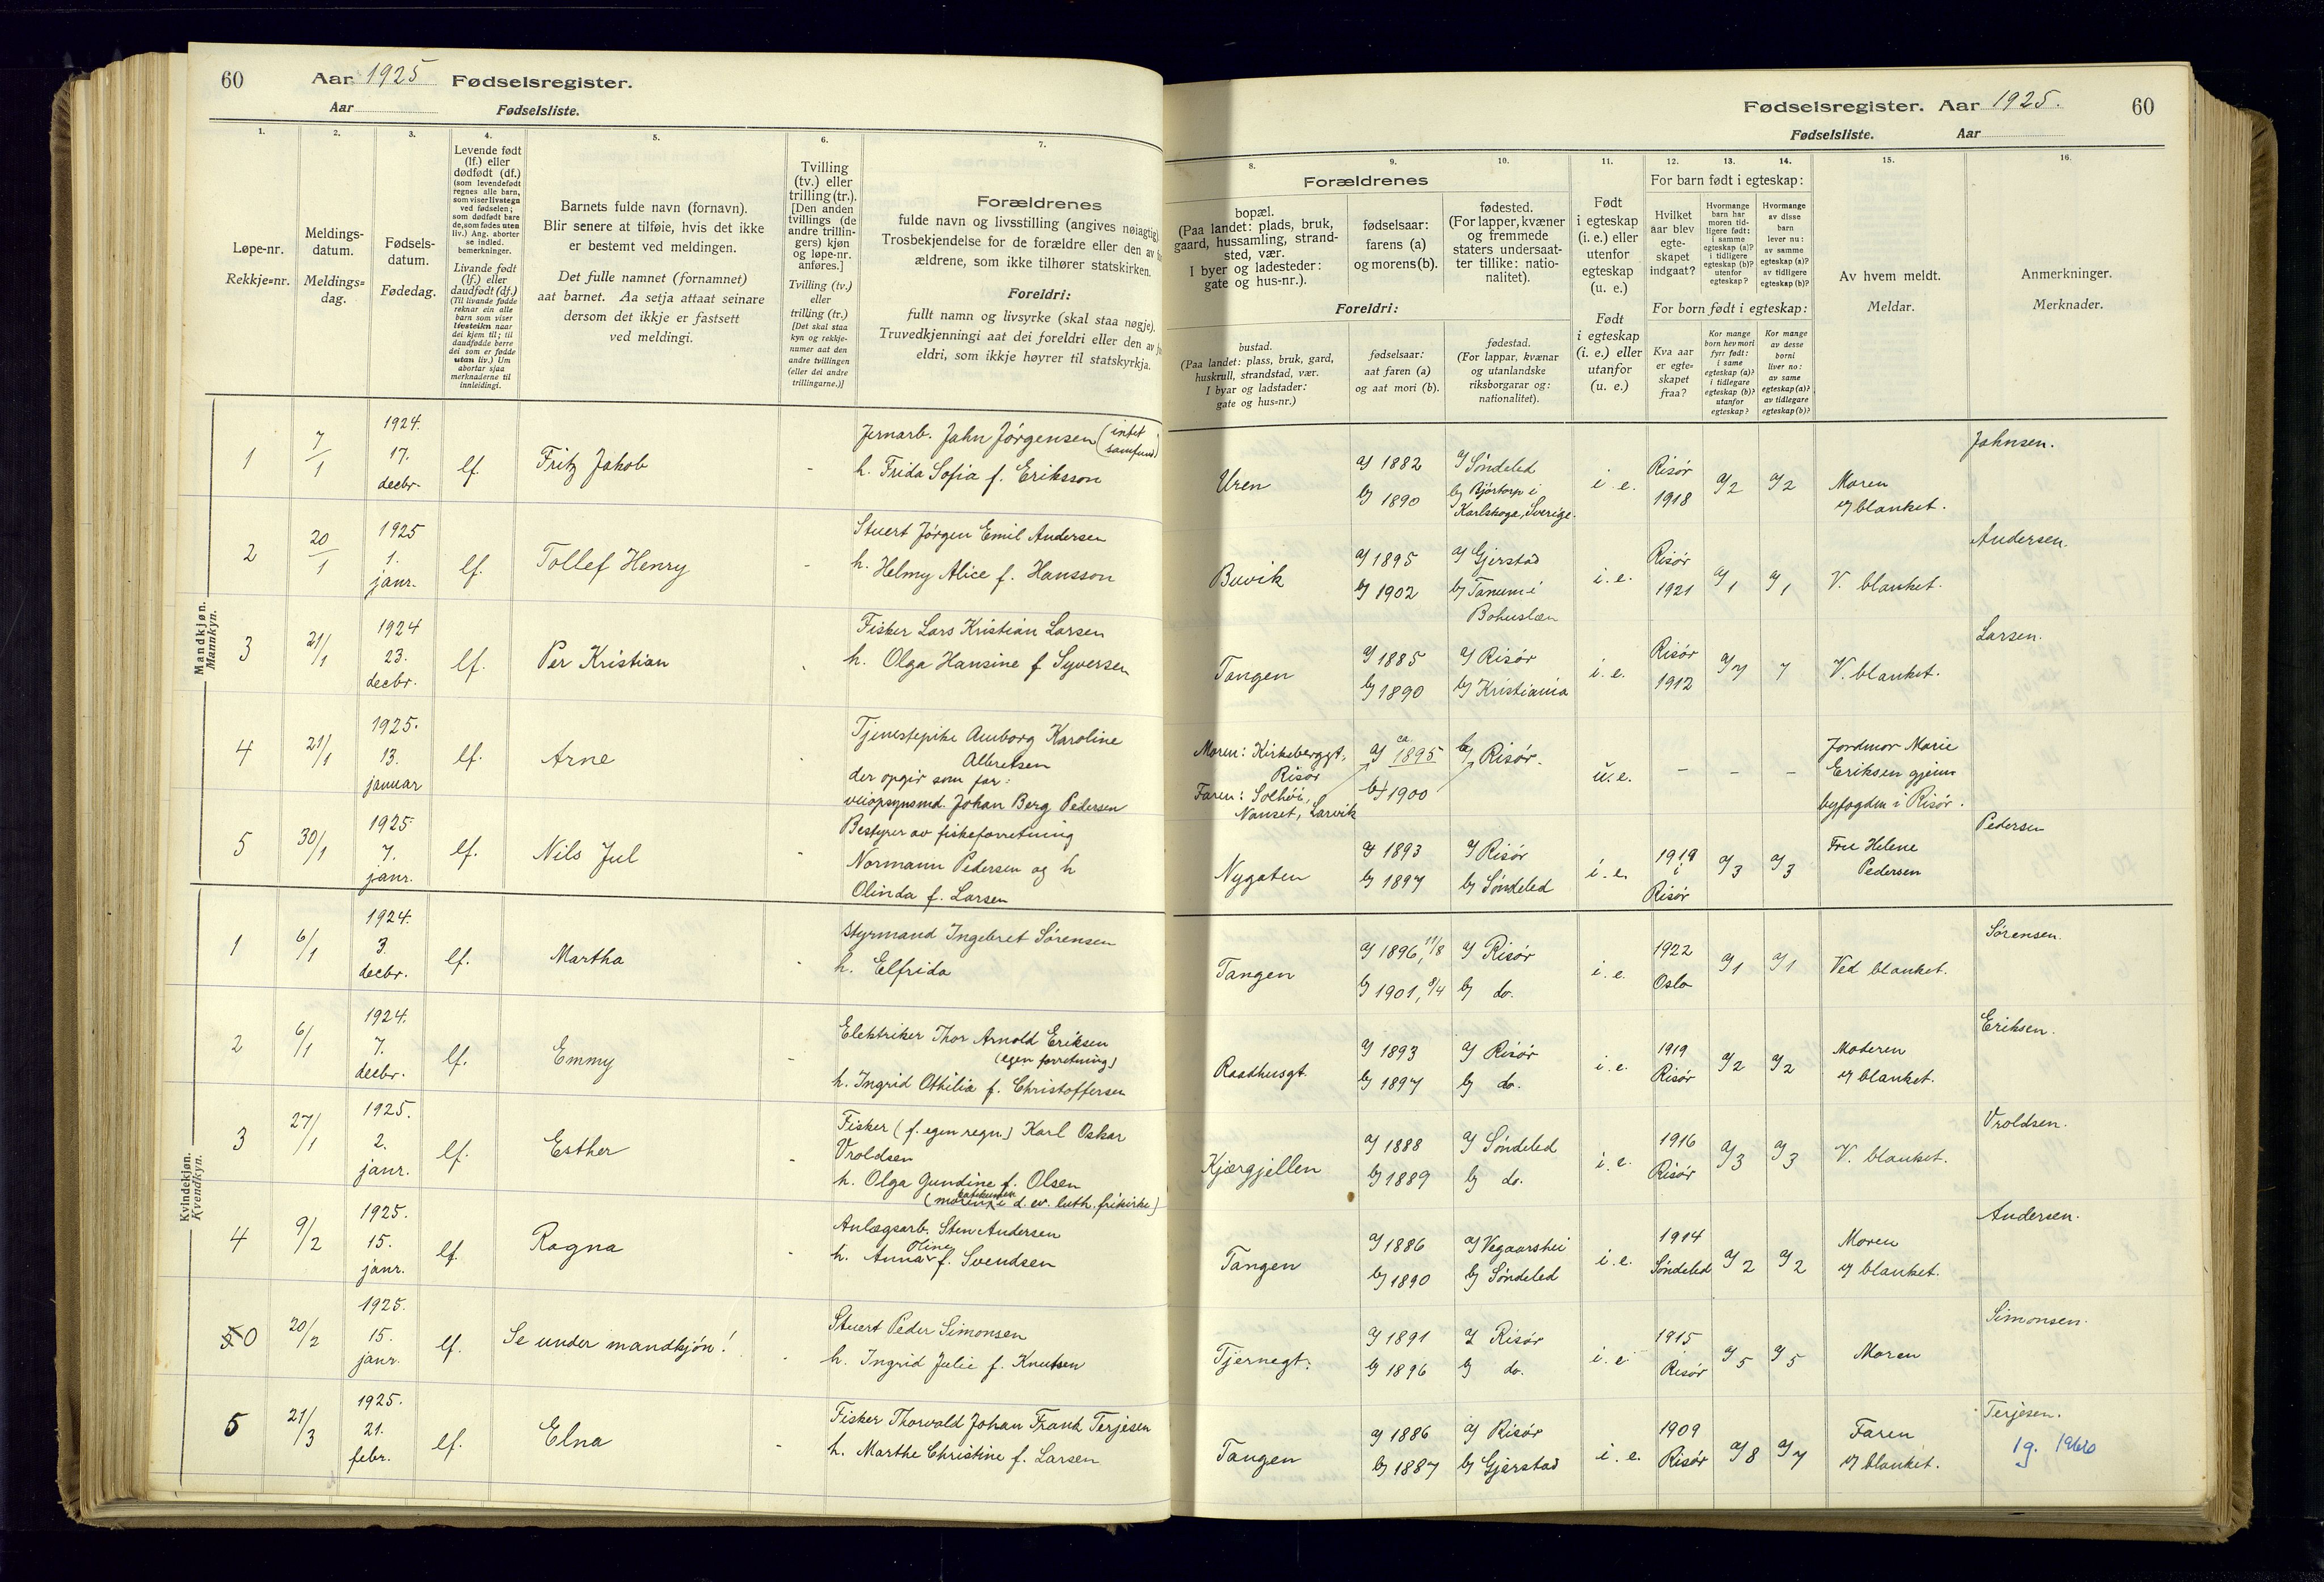 60 Aar 1925 Fødselsregister.
Aar Fødselsliste.
1. 2. 3. 4. 5. 6. 7.
Løpe-nr.
Rekkje=nr.
Meldings-
datum.
Meldings=
dag.
Fødsels-
datum.
Fødedag.
Levende født
(lf.) eller
dødfødt (df.)
(som levendefødt
regnes alle barn,
som viser livstegn
ved fødselen;
som dødfødt bare
de, som fødes uten
liv.) Ang. aborter
se indled.
bemerkninger.
Livande født
(lf.) eller
daudfødt (df.)
(Til livande fødde
reknar ein alle
barn som viser
livsteikn naar
dei kjem til; til
daudfødde berre
dei som er fødde
utan liv.) Um
abortar sjaa
merknaderne til
innleidingi.
Barnets fulde navn (fornavn).
Blir senere at tilføie, hvis det ikke
er bestemt ved meldingen.
Det fulle namnet (fornamnet)
aat barnet. Aa setja attaat seinare
dersom det ikkje er fastsett
ved meldingi.
Tvilling
(tv.) eller
trilling (tr.).
[Den anden
tvillings (de
andre trillin-
gers) kjøn
og løpe-nr.
anføres.]
Tvilling (tv.)
eller
trilling (tr.)
[Det skal staa
kyn og rekkje-
numer aat den
andre tvillingen
(eller dei andre
trillingarne.)]
Forældrenes
fulde navn og livsstilling (angives nøiagtig)
Trosbekjendelse for de forældre eller den av
ældrene, som ikke tilhører statskirken.
Foreldri:
fullt namn og livsyrke (skal staa nøgje).
Truvedkjenningi aat dei foreldri eller den av
eldri, som ikkje høyrer til statskyrkja.
Mandkjøn.
Mannkyn.
1 7/1 1924. 17. decbr. lf. Fritz Jakob - Jernarb. Jahn Jørgensen (intet samfund)
h. Frida Sofia f. Eriksson
2 20/1 1925 1. janr. lf. Tollef Henry - Stuert Jørgen Emil Andersen
h. Helmy Alice f. Hansson
3 21/1 1924 23. decbr. lf. Per Kristian - Fisker Lars Kristian Larsen
h. Olga Hansine f Syversen
4 21/1 1925. 13. januar lf. Arne - Tjenestepike Amborg Karoline
Albretsen
der opgir som far:
veiopsynsmd. Johan Berg Pedersen
5 30/1 1925 7. janr. lf. Nils Jul - Bestyrer av fiskeforretning
Normann Pedersen og h
Olinda f. Larsen
Kvindekjøn.
Kvendkyn.
1 6/1 1924. 3. decbr. lf. Martha - Styrmand Ingebret Sørensen
h. Elfrida
2 6/1 1924. 7. decbr. lf. Emmy - Elektriker Thor Arnold Eriksen
(egen forretning)
h. Ingrid Othilia f. Christoffersen
3 27/1 1925. 2. janr. lf. Esther - Fisker (f. egen regn.) Karl Oskar
Vroldsen
h. Olga Gundine f. Olsen
(moren i d. ev. luth. frikirke)
4 9/2 1925. 15. janr. lf. Ragna - Anlægsarb. Sten Andersen
h. Anna Oline f. Svendsen
5 0 20/2 1925. 15. janr. lf. Se under mandkjøn! - Stuert Peder Simonsen
h. Ingrid Julie f. Knutsen
5 21/3 1925. 21. febr. lf. Elna - Fisker Thorvald Johan Frank Terjesen
h. Marthe Christine f. Larsen
Fødselsregister. Aar 1925. 60
Fødselsliste. Aar
8. 9. 10. 11. 12. 13. 14. 15. 16.
Forældrenes
bopæl.
(Paa landet: plads, bruk,
gaard, hussamling, strand-
sted, vær.
I byer og ladesteder:
gate og hus-nr.).
fødselsaar:
farens (a)
og morens (b).
fødested.
(For lapper, kvæner
og fremmede
staters undersaat-
ter tillike: natio-
nalitet).
Foreldri:
bustad.
(Paa landet: plass, bruk, gard,
huskrull, strandstad, vær.
I byar og ladstader:
gate og hus=nr.)
fødselsaar:
aat faren (a)
og aat mori (b).
fødestad.
(For lappar, kvænar
og utanlandske
riksborgarar og:
nationalitet).
Født
i egteskap
(i. e.) eller
utenfor
egteskap
(u. e.)
Født
i egteskap
(i. e.) eller
utanfor
(u. e.)
For barn født i egteskap:
Hvilket
aar blev
egte-
skapet
indgaat?
Hvormange
barn har
moren tid-
ligere født:
i samme
egteskap (a)?
i tidligere
egteskap (b)?
utenfor
egteskap?
Hvormange
av disse
barn
lever nu:
av samme
egteskap (a)?
av tidligere
egteskap (b)?
For born født i egteskap:
Kva aar
er egte=
skapet
fraa?
Kor mange
born hev mori
fyrr født:
i same
egteskap (a)?
i tidlegare
egteskap (b)?
utanfor
egteskap?
Kor mange
av desse
borni
liver no:
av same
egteskap (a)?
av tidlegare
egteskap (b)?
Av hvem meldt.
Meldar.
Anmerkninger.
Merknader.
Uren a) 1882 a) Søndeled i. e. Risør a)2 a)2 Moren Jahnsen.
b) 1890 b) Bjortorp i Karlskoga, Sverige. 1918 v/ blanket.
Buvik a) 1895 a) Gjerstad i. e. Risør a)1 a)1 V. blanket. Andersen.
b) 1902 b) Tanum i Bohuslæn 1921
Tangen a) 1885 a) Risør i. e. Risør a)7 7 V. blanket. Larsen.
b) 1890 b) Kristiania 1912
Moren: Kirkeberggt. Risør a) ca. 1895 b) Risør. u. e. - - - Jordmor Marie
Faren: Solhöi, Nanset, Larvik b) 1900 Eriksen gjenn
byfogden i Risør.
Nygaten a) 1893 a) Risør i. e. 1919 i Risør a)3 a)3 Fru Helene Pedersen Pedersen
b) 1897 b) Søndeled
Tangen a) 1896, 11/8 a) Risør i. e. 1922 a)1 a)1 Ved blanket. Sørensen.
b) 1901, 8/4 b) do. Oslo
Raadhusgt. a) 1893 a) Risør i. e. 1919 a)2 a)2 Moderen Eriksen.
b) 1897 b) do. Risør v/ blanket.
Kjærgjellen a) 1888 a) Søndeled i. e. 1916 a)3 a)3 V. blanket. Vroldsen.
b) 1889 b) do. Risør
Tangen a) 1886 a) Vegaarshei i. e. 1914 a)2 a)2 Moren Andersen.
b) 1890 b) Søndeled Søndeled v/ blanket.
Tjernegt. a) 1891 a) Risør i. e. 1915 a)5 a)5 Moren Simonsen.
b) 1896 b) do. Risør
Tangen a) 1886 a) Risør i. e. 1909 a)8 a)7 Faren Terjesen.
b) 1887 b) Gjerstad Risør v/ blanket.